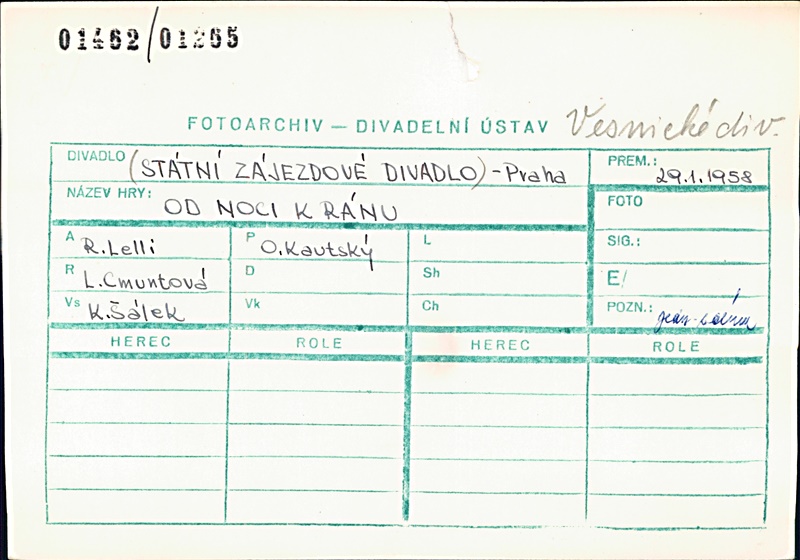 01462/01265
FOTOARCHIV — DIVADELNÍ ÚSTAV Vesnické div.
DIVADLO (STÁTNÍ ZÁJEZDOVÉ DIVADLO) - Praha
PREM.: 29.1.1958
NÁZEV HRY: OD NOCI K RÁNU
FOTO
A R. Lelli
P O. Kautský
L
SIG.:
R L. Cmuntová
D
Sh
E/
Vs K. Šálek
Vk
Ch
POZN.:
HEREC ROLE HEREC ROLE